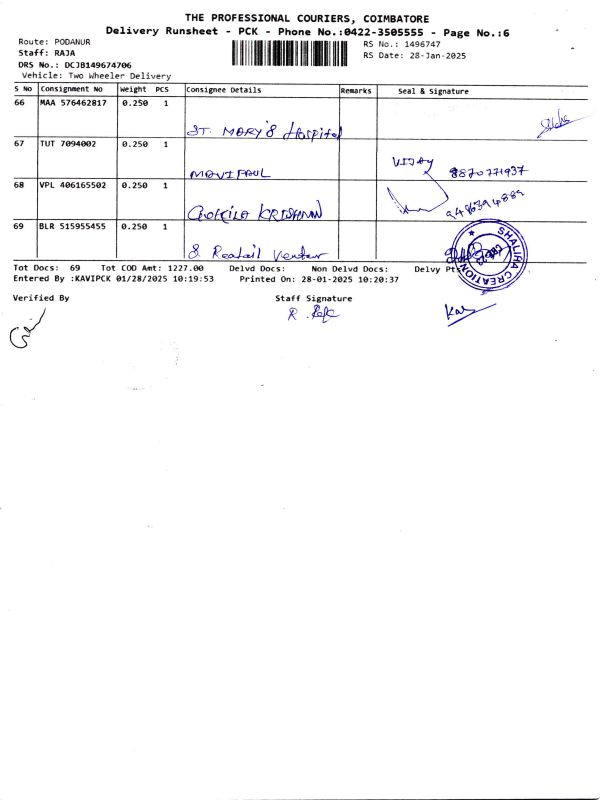 THE PROFESSIONAL COURIERS, COIMBATORE
Delivery Runsheet - PCK - Phone No.:0422-3505555 - Page No.:6
Route: PODANUR
RS No.: 1496747
Staff: RAJA
RS Date: 28-Jan-2025
DRS No.: DCJB149674706
Vehicle: Two Wheeler Delivery
S No Consignment No Weight PCS Consignee Details Remarks Seal & Signature
66 MAA 576462817 0.250 1
ST. MARY'S Hospital
67 TUT 7094002 0.250 1
VIJAY
8870771937
68 VPL 406165502 0.250 1
KRISHNAN
9486394889
69 BLR 515955455 0.250 1
SHALIHA CREATION
Tot Docs: 69 Tot COD Amt: 1227.00 Delvd Docs: Non Delvd Docs: Delvy Pts
Entered By :KAVIPCK 01/28/2025 10:19:53 Printed On: 28-01-2025 10:20:37
Verified By Staff Signature